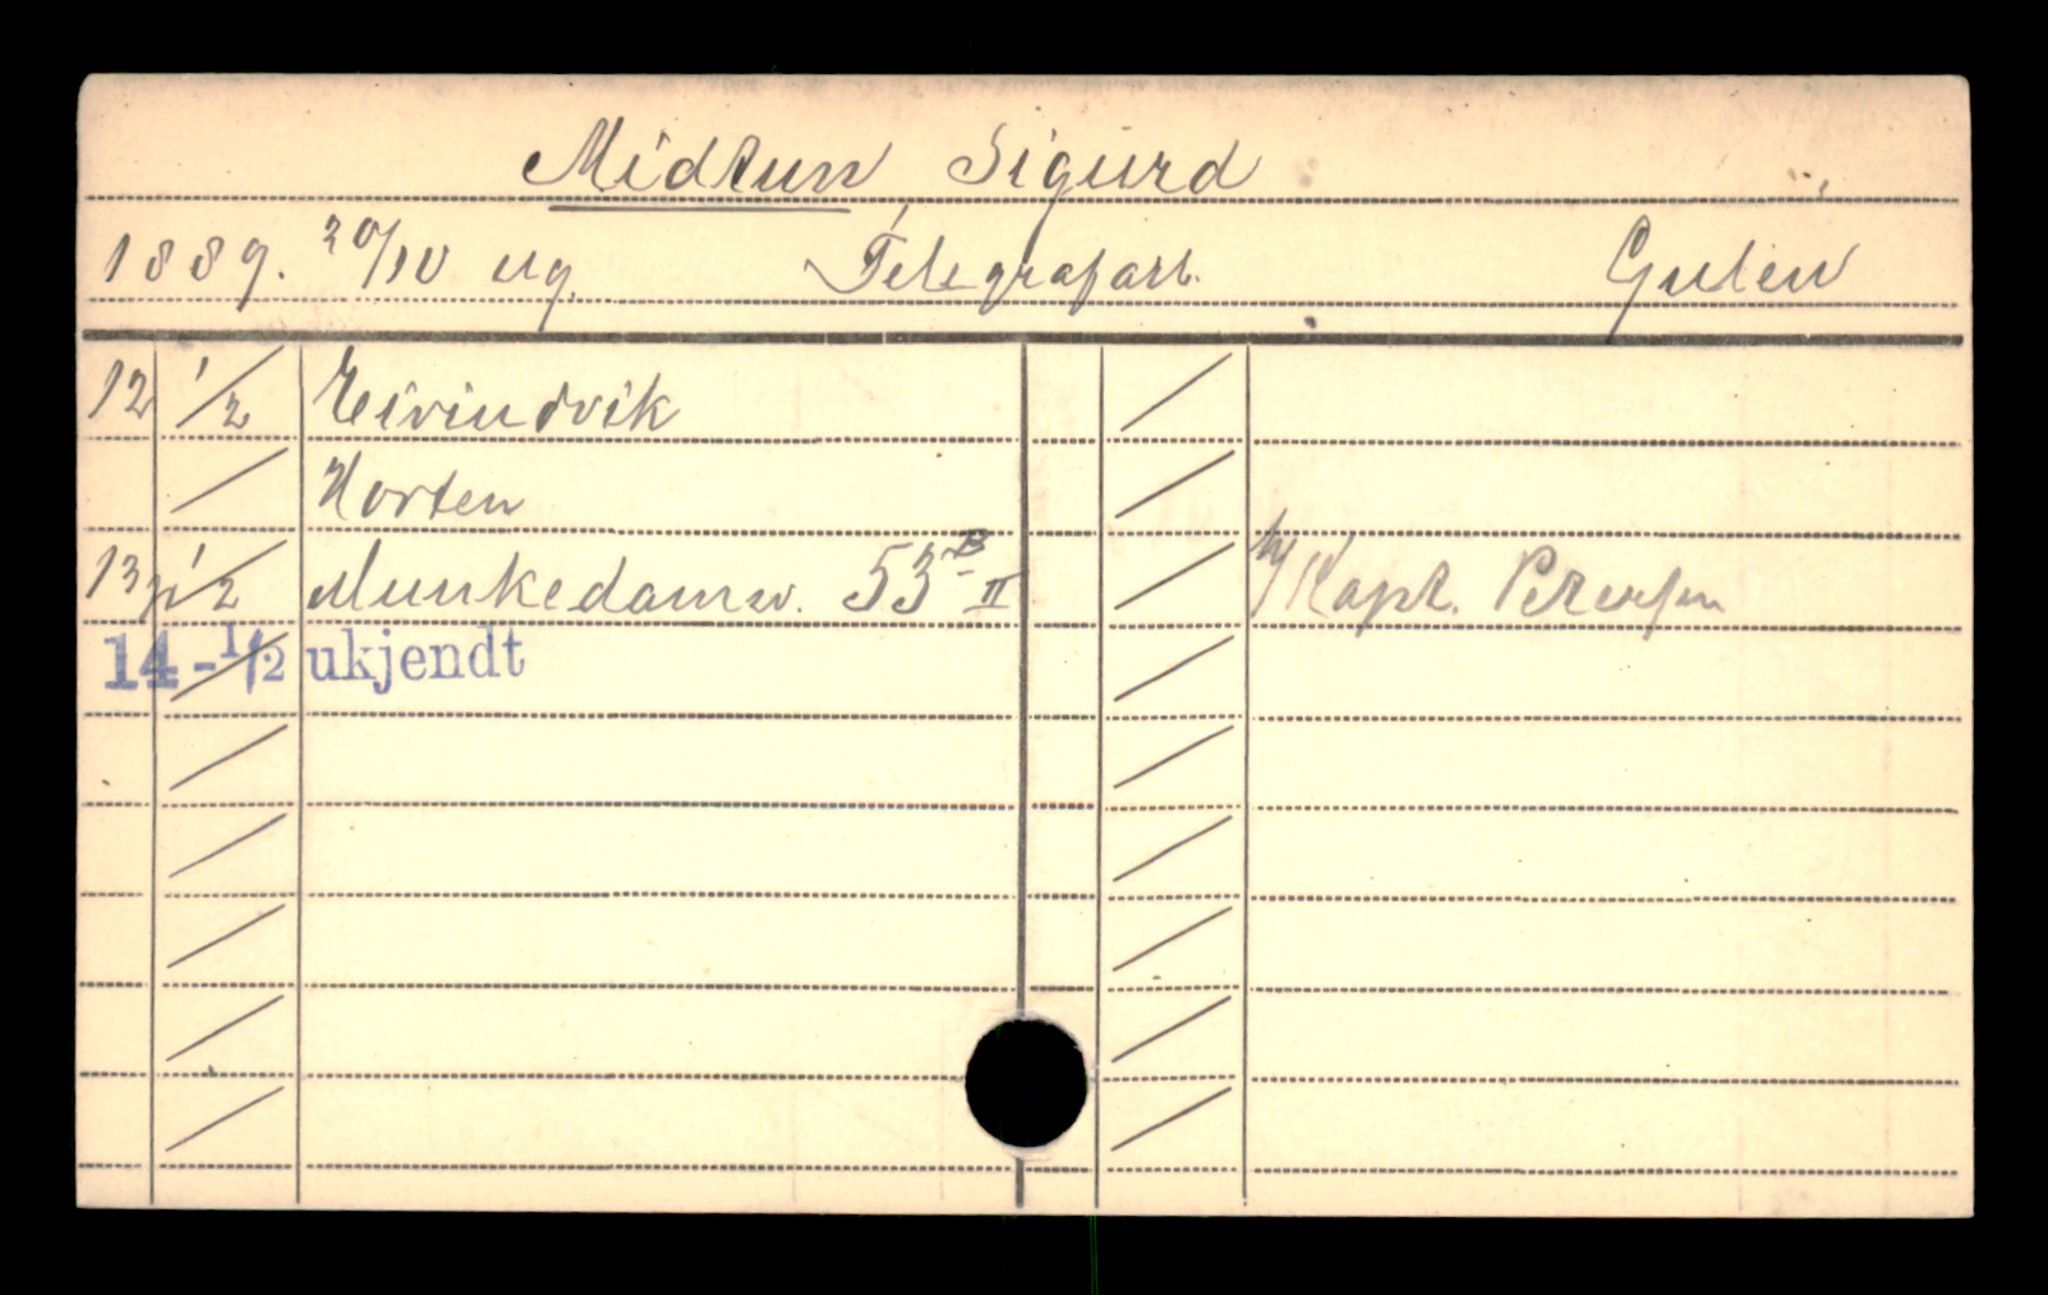 Midtun Sigurd
1889. 20/10 ug. Telegrafarb. Gulen
12 1/2 Eivindvik
Horten
13 1/2 Munkedamsv. 53 B II h/ Kapt. Petersen
14-1/2 ukjendt